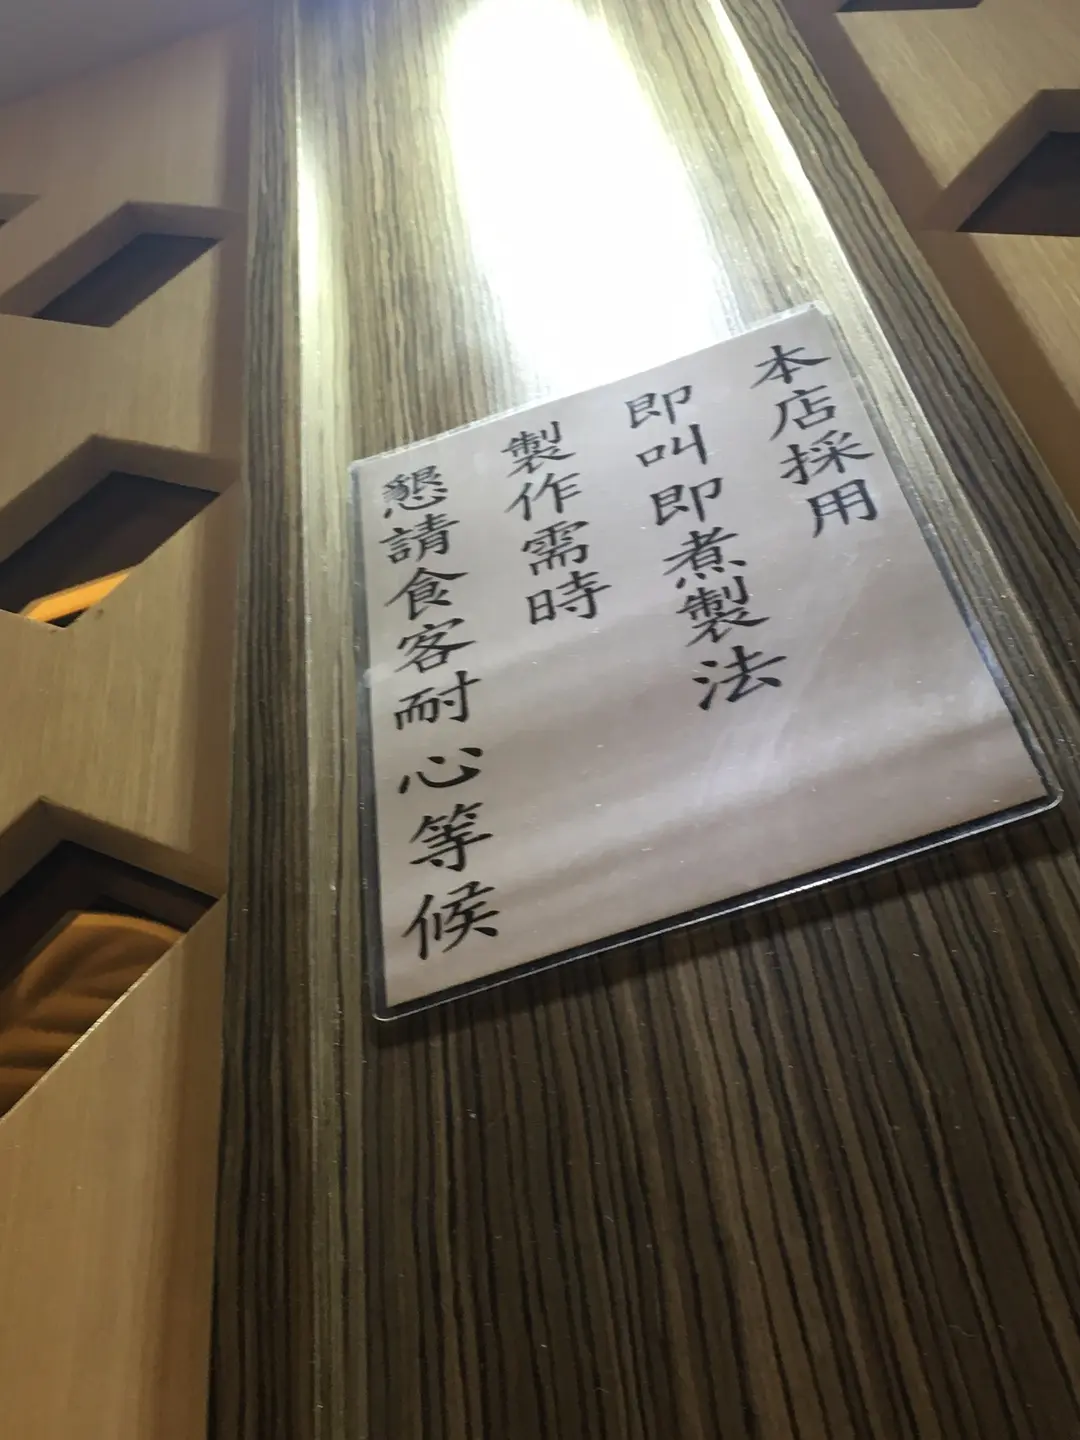 本店採用
即叫即煮製法
製作需時
懇請食客耐心等候